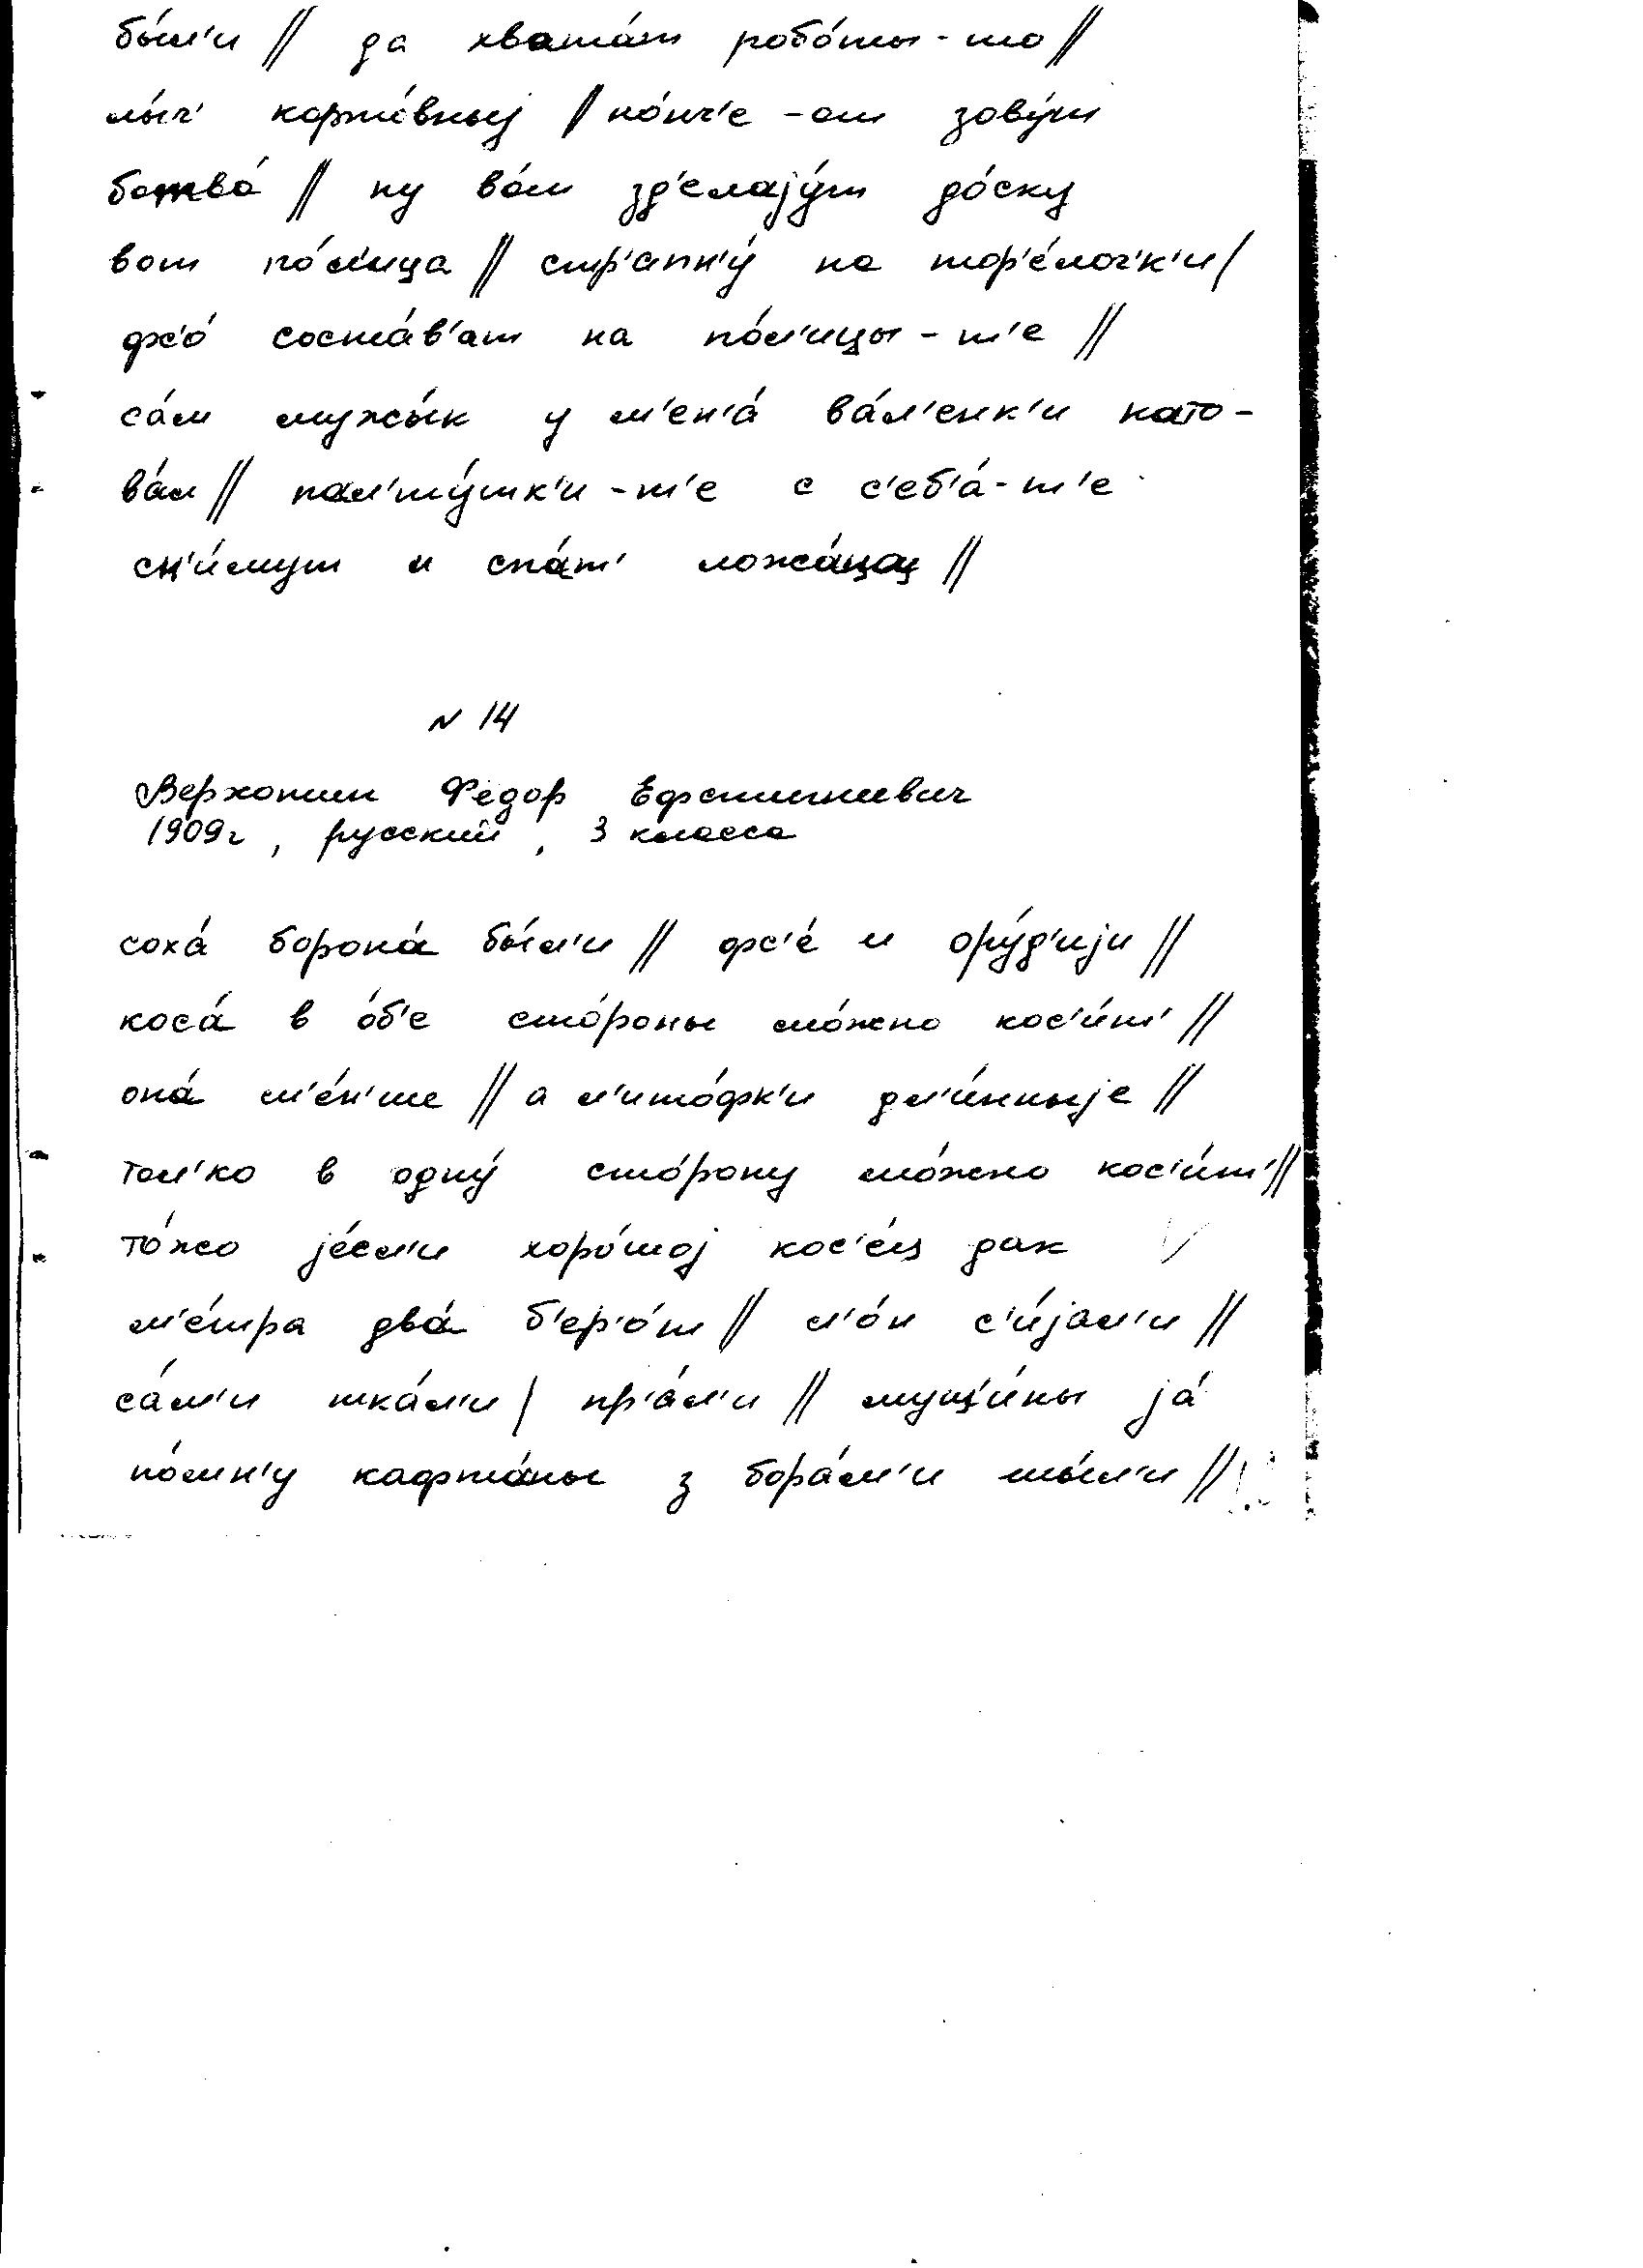 бы́л'и // да хвата́т робо́ты-то //
лы́ч' карто́вныj / но́нч'е-от зову́т
ботва́ // ну во́т зд'елаjу́т до́ску
вот по́л'ица // стр'апн'у́ на тор'е́лоч'к'и /
фс'о́ соста́в'ат на по́л'ицы-т'е //
са́м мужы́к у м'ен'а́ ва́л'енк'и като-
ва́л // пал'ту́шк'и-т'е с с'еб'а́-т'е
сн'и́мут и спа́т' ложа́цца //
N 14
Верхотин Федор
1909г, русский, 3 класса
соха́ борона́ бы́л'и // фс'е́ и ору́д'иjи //
коса́ в о́б'е сто́роны мо́жно кос'и́т' //
она́ м'е́н'ше // а л'ито́фк'и дл'и́нныjе //
тол'ко в одну́ сто́рону мо́жно кос'и́т' //
то́жо jе́сл'и хоро́шоj кос'е́ц дак
м'е́тра два́ б'ер'о́т // л'о́н с'и́jал'и //
са́м'и тка́л'и / пр'а́л'и // мущ'и́ны jа́
по́мн'у кафта́ны з бора́м'и шы́л'и //